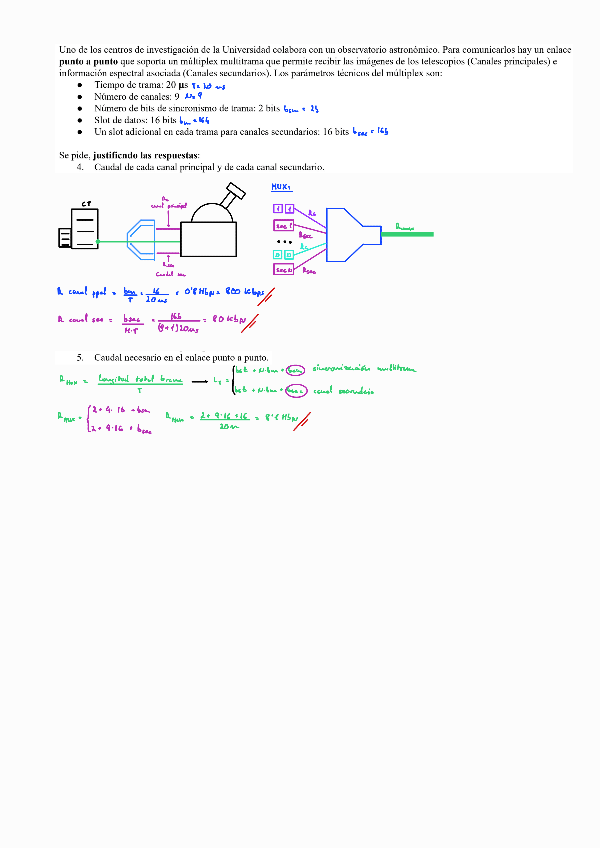 Uno de los centros de investigación de la Universidad colabora con un observatorio astronómico. Para comunicarlos hay un enlace
punto a punto que soporta un múltiplex multitrama que permite recibir las imágenes de los telescopios (Canales principales) e
información espectral asociada (Canales secundarios). Los parámetros técnicos del múltiplex son:
● Tiempo de trama: 20 μs T= 20 us
● Número de canales: 9 N=9
● Número de bits de sincronismo de trama: 2 bits
● Slot de datos: 16 bits
● Un slot adicional en cada trama para canales secundarios: 16 bits bsec = 16b
Se pide, justificando las respuestas:
4. Caudal de cada canal principal y de cada canal secundario.
CT
canal principal
Rsec
Canal sec
MUX1
1 1
Rc
sec 1
Rsec
Rc
sec
Rsec
R canal ppal = = 16 / 20us = 0'8 Mbps = 800 kbps
R canal sec = bsec / M·T = 16b / (9+1)20us = 80 kbps
5. Caudal necesario en el enlace punto a punto.
RMUX = Longitud total trama / T → sincronización multitrama
canal secundario
RMUX = 2 + 9·16 +
2 + 9·16 + bsec
RMUX = 2 + 9·16 + 16 / 20u = 8'1 Mbps